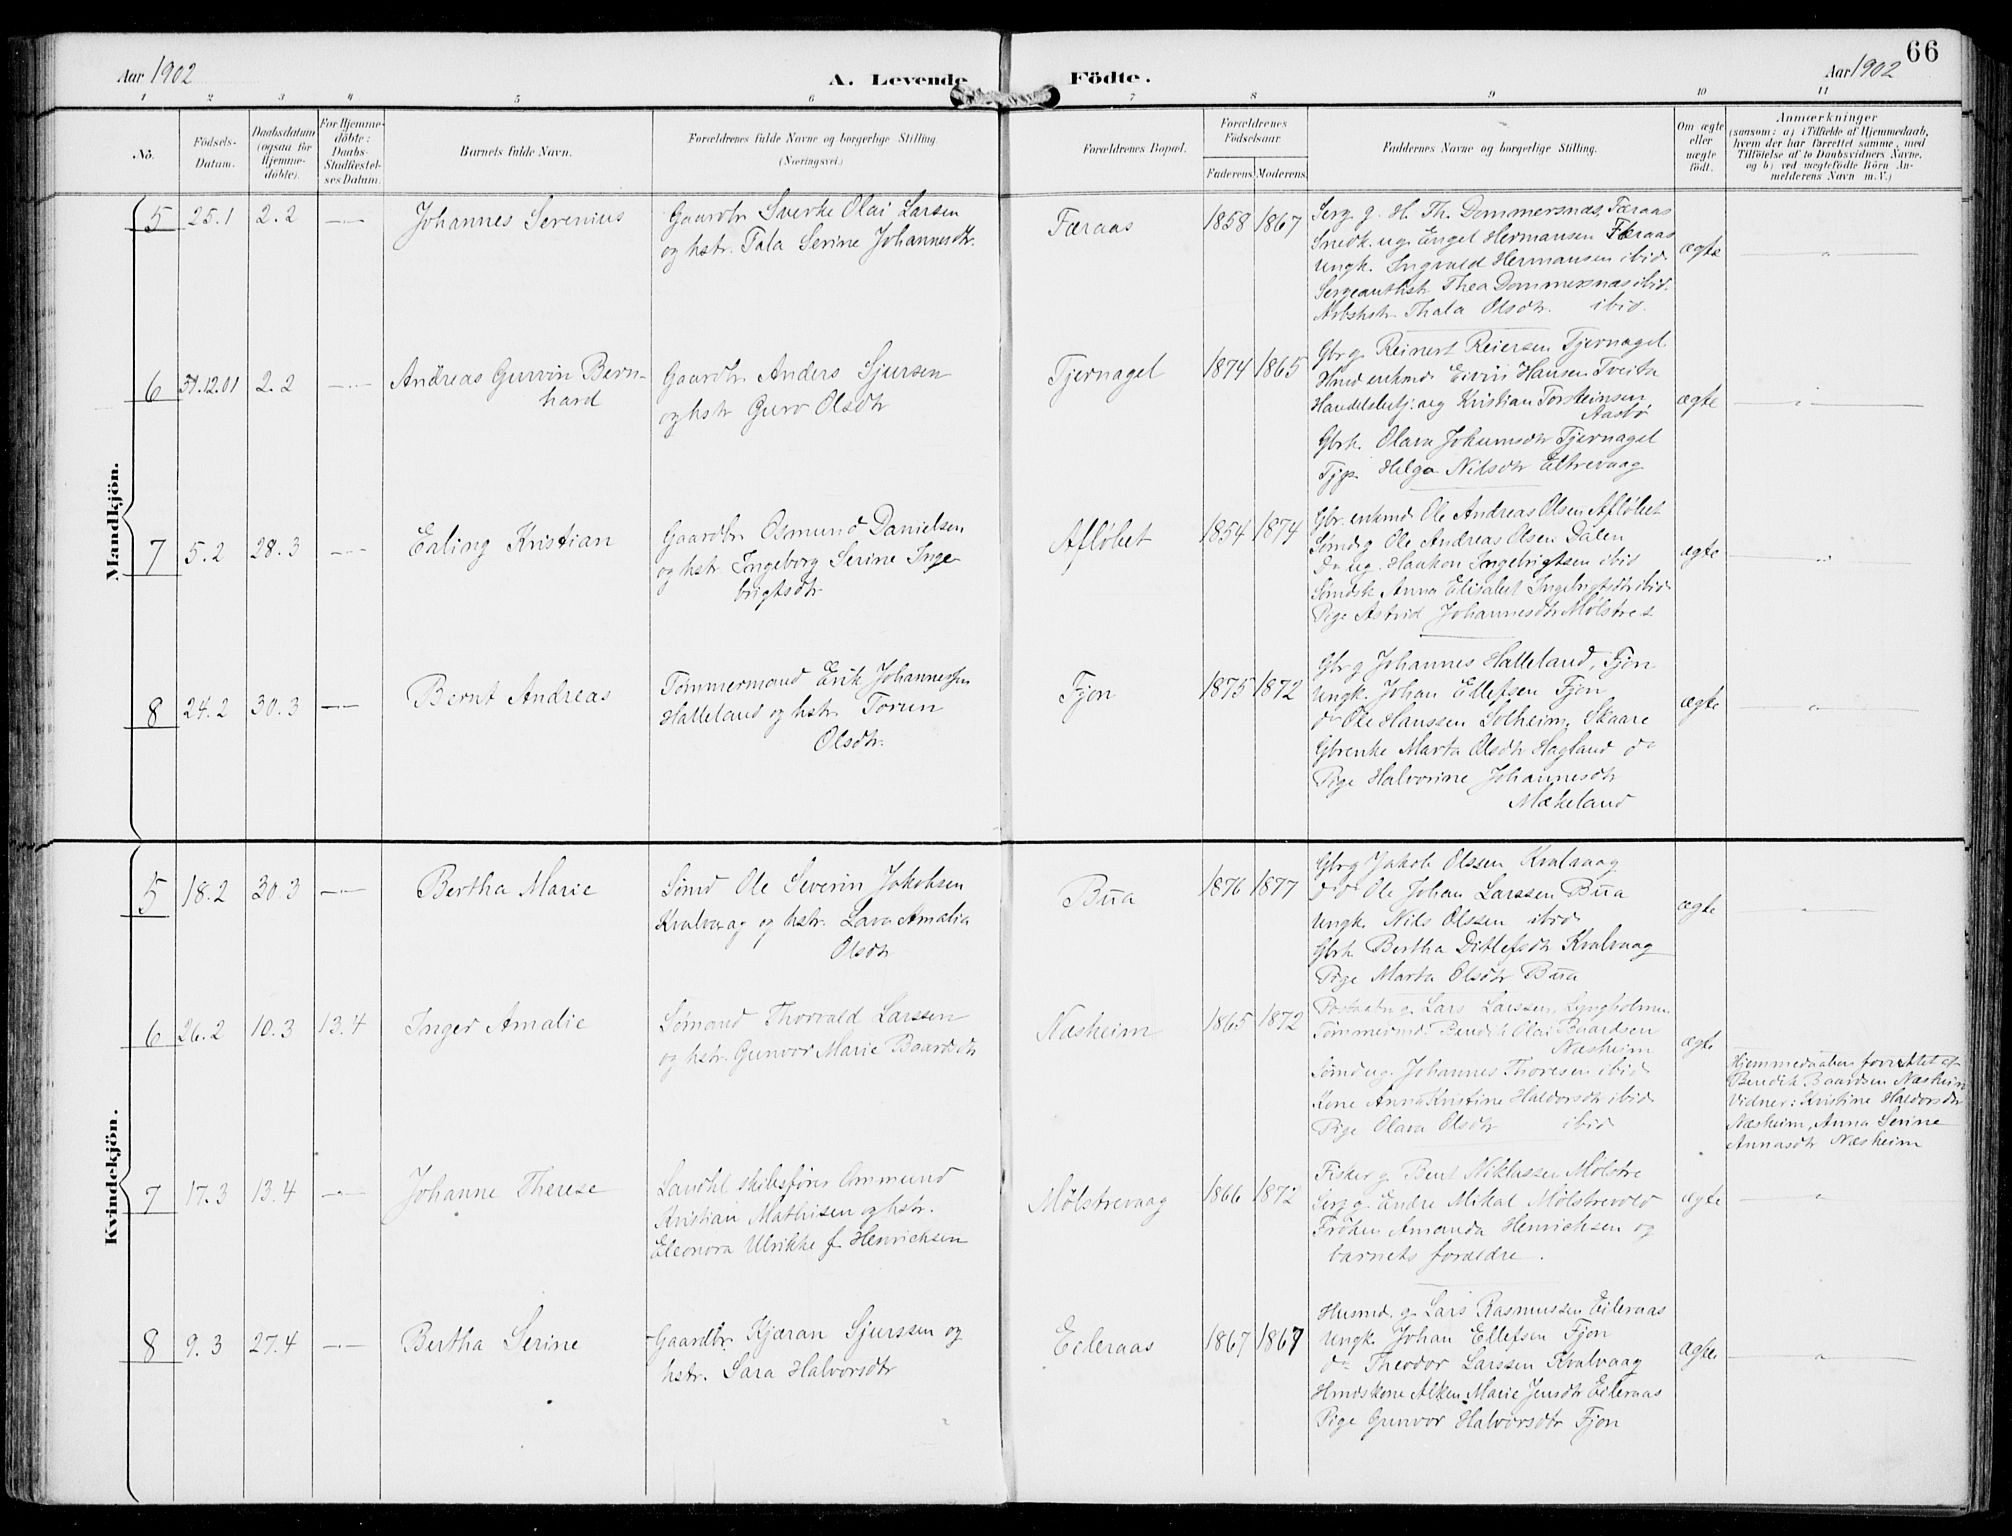 66
Aar 1902
A. Levende Födte.
Aar 1902
1 2 3 4 5 6 7 8 9 10 11
No.
Födsels-Datum.
Daabsdatum (ogsaa for Hjemmedöbte).
For Hjemmedöbte: Daabs-Stadfæstelses Datum.
Barnets fulde Navn.
Forældrenes fulde Navne og borgerlige Stilling (Næringsvei.)
Forældrenes Bopæl.
Forældrenes Födselsaar
Faderens Moderens
Faddernes Navne og borgerlige Stilling.
Om ægte eller uægte födt.
Anmærkninger
(saasom: a) i Tilfælde af Hjemmedaab, hvem der har forrettet samme, med Tilföielse af to Daabsvidners Navne, og b) ved uægtefödte Börn Anmelderens Navn m. V.)
Mandkjön.
5 25.1 2.2 Johannes Serenius
Gaardbr Sverke Olai Larsen
og hstr. Tala Serine Johannesdtr.
Færaas 1858 1867
Serg. g. H. Th. Dommersnæs, Færaas
Snedk. ug. Engel Hermansen Færaas
Ungk. Ingvald Hermansen ibid.
Sergeanthstr Thea Dommersnæs ibid.
Arbshstr. Thala Olsdtr. ibid.
ægte
6 31.12.01 2.2 Andreas Gurvin Bernhard
Gaardbr. Anders Sjursen
og hstr Guro Olsdtr
Tjernagel 1874 1865
Gbr g. Reinert Reiersen Tjernagel
Hmd enkmd. Eivin Hansen Tveita
Handelsbetj. ug Kristian Torsteinsen, Aasbø
Gbrk. Olava Johannsdtr Tjernagel
Tjp. Helga Nilsdtr Eltrevaag
ægte
7 5.2 28.3 Erling Kristian
Gaardbr Osmund Danielsen
og hstr Ingeborg Serine Ingebrigtsdtr
Afløbet 1854 1874
Gbr. enkmd. Ole Andreas Olsen Afløbet
Sømd g Ole Andreas Olsen Dalen
Do ug. Haakon Ingebrigtsen ibid
Sømdsk Anna Elisabet Ingebrigtsdtr ibid.
Pige Astrid Johannesdtr Mølstre
ægte
8 24.2 30.3 Bernt Andreas
Tømmermand Erik Johannessen
Halleland og hstr. Torun
Olsdtr.
Fjon 1875 1872
Gbr g Johannes Halleland, Fjon
Ungk. Johan Ellefsen Fjon
do Ole Hanssen Solheim, Skaare
Gbrenke Marta Olsdtr Hagland do
Pige Halvorine Johannesdtr
Mækeland
ægte
Kvindekjön.
5 18.2 30.3 Bertha Marie
Sømd Ole Severin Jakobsen
Kvalvaag og hstr. Lava Amalia
Olsdtr
Bua 1876 1877
Gbr g Jakob Olssen Kvalvaag
do do Ole Johan Larssen Bua
Ungk. Nils Olssen ibid
Gbrk Bertha Ditlefsdtr Kvalvaag
Pige Marta Olsdtr Bua
ægte
6 26.2 10.3 13.4 Inger Amalie
Sømand Thorvald Larssen
og hstr. Gunvor Marie Baardsdtr
Næsheim 1865 1872
Lars Larssen, Lyngholmen
Tømmermd. Bendik Olai Baardsen
Næsheim
Sømd ug. Johannes Thoresen ibid
Kone Anna Kristine Haldorsdtr ibid
Pige Olava Olsdtr ibid
ægte
Hjemmedaaben forrettet af
Bendik Baardsen Næsheim
Vidner: Kristine Haldorsdtr
Næsheim, Anna Serine
Annasdtr Næsheim
7 17.3 13.4 Johanne Therese
Landhl skibsfører Ommund
Kristian Mathisen og hstr.
Eleonora Ulrikke f. Henrichsen
Mølstrevaag 1866 1872
Fisker g Bent Niklassen Mølstre
Serg g. Endre Mikal Mølstrevold
Frøken Amanda Henrichsen og
barnets foraldre.
ægte
8 9.3 27.4 Bertha Serine
Gaardbr. Kjæran Sjurssen og
hstr. Sara Halvorsdtr
Eileraas 1867 1867
Husmd. g. Lars Rasmussen Eileraas
Ungk. Johan Ellefsen Fjon
do Theodor Larssen Kvalvaag
Hmdskone Alken Marie Jensdtr Eileraas
Pige Gunvor Halvorsdtr Fjon
ægte